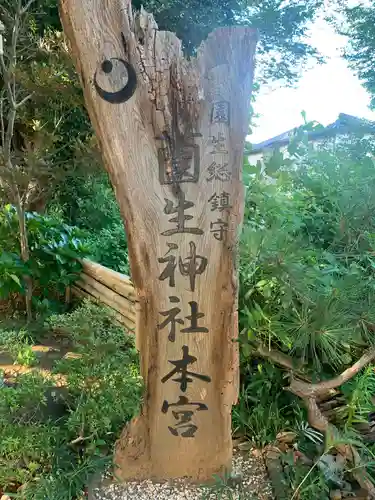 園生総鎮守
薗生神社本宮